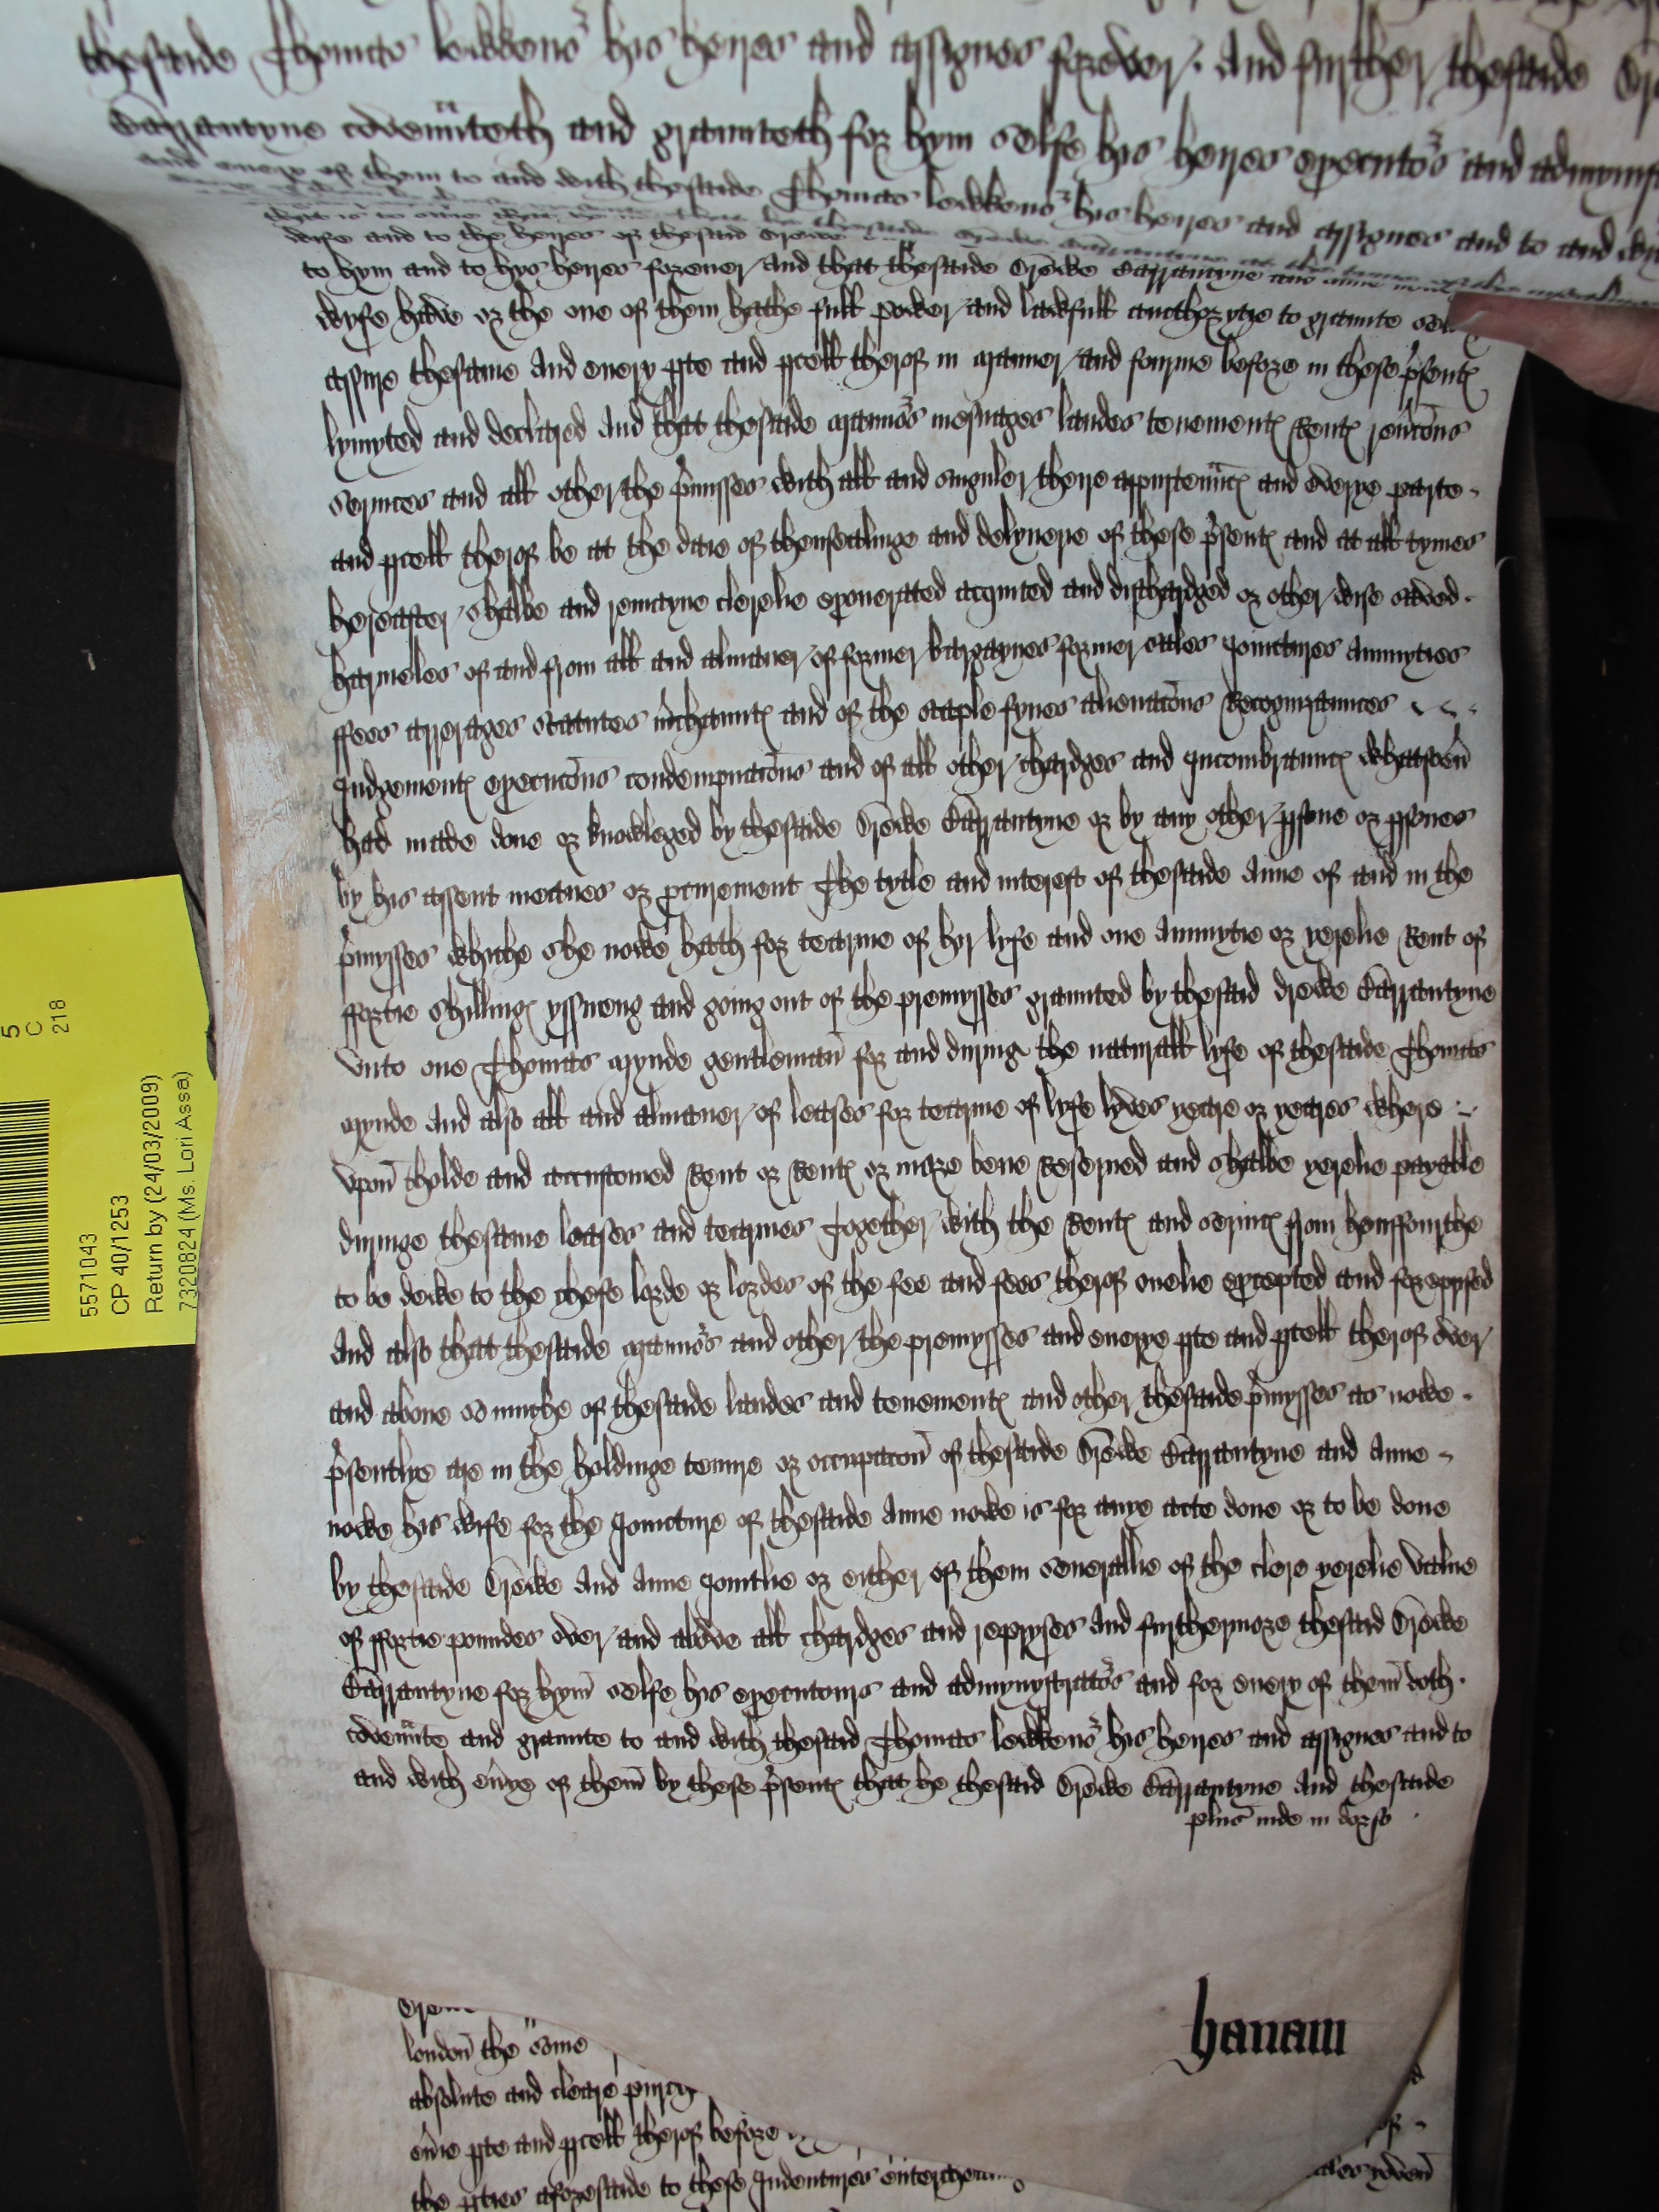 thesaide Thomas Lewkenor his heires and assignes forever. And further thesaide
Sarrantyne covenñteth and graunteth for hym selfe his heires executors and admynis
and every of them to and with thesaide Thomas Lewkenor his heires and assignes and to and
wife and to the heires of thesaid Drewe
to hym and to hys heires forever And that thesaide Drewe Sarrantyne and Anne
wyfe have or the one of them hathe full power and lawfull aucthorytye to graunte
assure thesame And every pte and pcell therof in maner and fourme before in these psentꝭ
lymyted and declared And that thesaide mannors mesuages landes tenementꝭ Rentꝭ revercõns
services and all other the pmisses with all and singuler theire appurtenñcꝭ and everye parte
and pcell therof be at the date of thensealinge and delyverie of these psentꝭ and at all tymes
hereafter shalbe and remayne clerelie exonerated acquited and dischardged or other wise saved
harmeles of and from all and almaner of former bargaynes former sales Joinctures Annuyties
ffees arrerages statutes mchauntꝭ and of the staple fynes alienacõns Recognizaunces
Judgementꝭ execucõns condempnacõns and of all other chardges and Incombrauncꝭ whatsoev
had made done or knowleged by thesaide Drewe Sarrantyne or by any other psone or psones
by his assent meanes or pcurement The tytle and interest of thesaide Anne of and in the
pmysses whiche she nowe hath for tearme of hir lyfe and one Annuytie or yerelie Rent of
ffortie shillingꝭ yssueng and going out of the premysses graunted by thesaid Drewe Sarrantyne
unto one Thomas Mynde gentleman for and during the naturall lyfe of thesaide Thomas
Mynde And also all and almaner of leases for tearme of lyfe lyves yeare or yeares where
upon tholde and accustomed Rent or Rentꝭ or more bene Reserved and shalbe yerelie payable
duringe thesame leases and tearmes Together with the Rentꝭ and servicꝭ from hensffourthe
to be dewe to the chefe lorde or lordes of the fee and fees therof onelie excepted and foreprysed
And also that thesaide mannors and other the premysses and everye pte and pcell therof over
and above so muche of thesaide landes and tenementꝭ and other thesaide pmysses as nowe
psentlye are in the holdinge tenure or occupacon of thesaide Drewe Sarrantyne and Anne
nowe his wife for the Joincture of thesaide Anne nowe is for anye acte done or to be done
by thesaide Drewe And Anne Jointlie or either of them severallie of the clere yerelie value
of ffortie poundes over and above all chardges and repryses And furthermore thesaid Drewe
Sarrantyne for hym selfe his executours and admynystrators and for every of them doth
covenñte and graunte to and with thesaid Thomas Lewkenor his heires and assignes and to
and with evye of them by these psentꝭ that he thesaid Drewe Sarrantyne And thesaide
plus inde in dorso
hanam
london the same
absolute and cleare
evie pte and pcell therof before
the pties aforesaide to these Indentures
5
C
218
5571043
CP 40/1253
Return by (24/03/2009)
7320824 (Ms. Lori Assa)